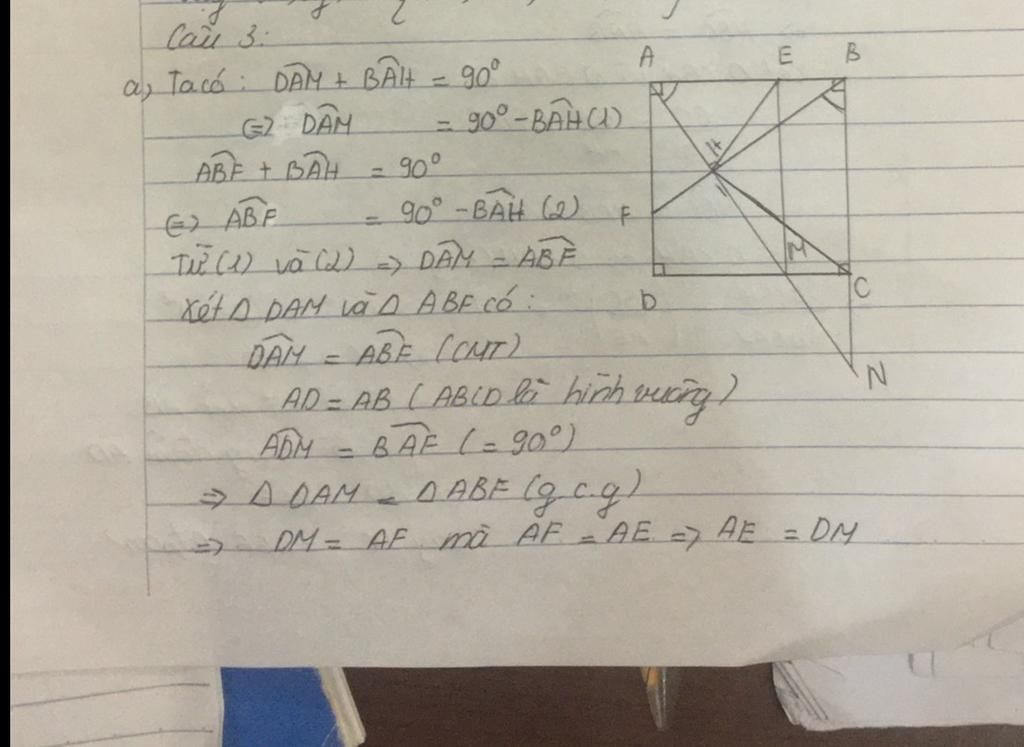 Câu 3:
a, Ta có: D̂AM + BÂH = 90°
⇔ D̂AM = 90° - BÂH (1)
ÂBF + BÂH = 90°
⇔ ÂBF = 90° - BÂH (2)
Từ (1) và (2) => D̂AM = ÂBF
Xét Δ DAM và Δ ABF có:
D̂AM = ÂBF (CMT)
AD = AB (ABCD là hình vuông)
ÂDM = BÂF (= 90°)
=> Δ DAM = Δ ABF (g.c.g)
=> DM = AF mà AF = AE => AE = DM
A E B
H
F
M
D C
N